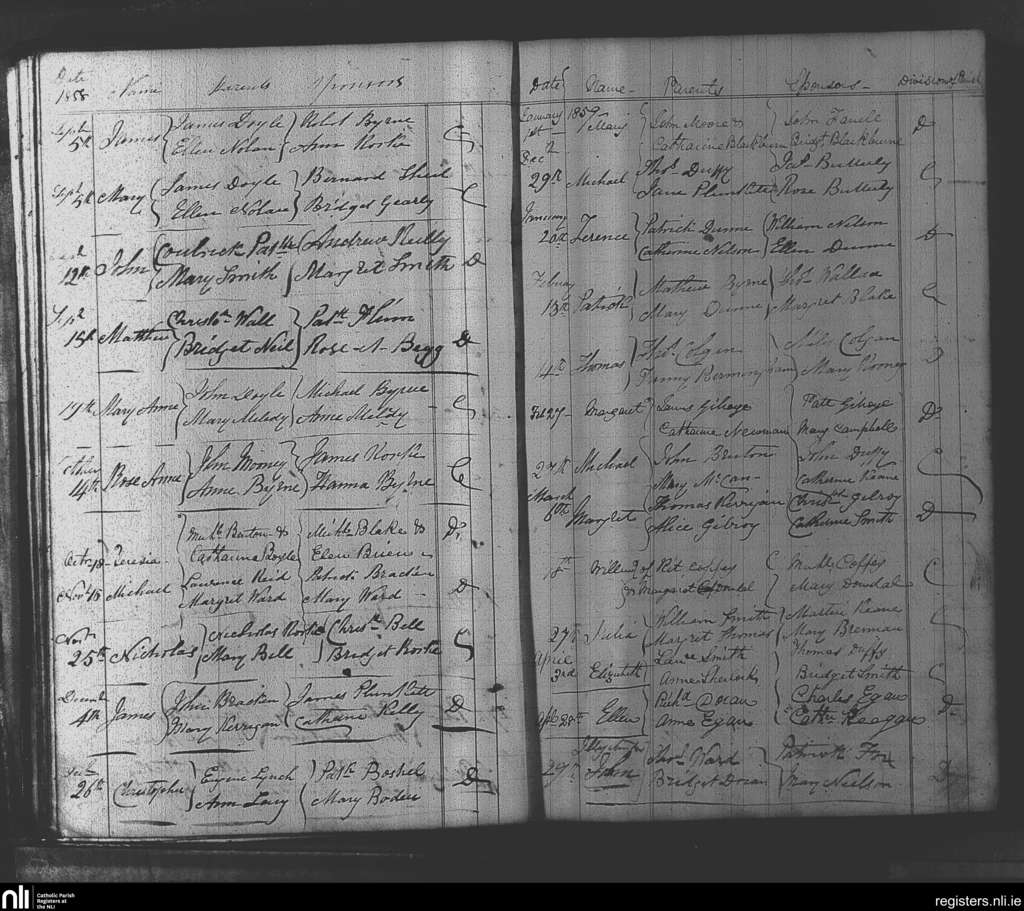 Date 1858 Name Parents Sponsors
Sept 5th James James Doyle Robt Byrne C
Ellen Nolan Ann Rorke
Sept 5th Mary James Doyle Bernard Sheil C
Ellen Nolan Bridget Gearty
12th John Patk Andrew Reilly D
Mary Smith Margret Smith
Sept 15th Matthew Christr Wall Patk
Bridget Neil Rose A Begg D
19th Mary Anne John Doyle Michael Byrne C
Mary Melady Anne Melady
14th Rose Anne John Mooney James Rorke C
Anne Byrne Hanna Byrne
Michl Barton & Michl Blake & D
Octr 18 Teresia Catharine Ellen Brien
Novr 15 Michael Laurence Reid Patrick Bracken D
Margret Ward Mary Ward
Novr 25th Nicholas Nicholas Rorke Christr Bell C
Mary Bell Bridget Rorke
December 4th James John Bracken James Plunkett D
Mary Kerrigan Catherine Kelly
26th Christopher Eugene Lynch Patk Boshel D
Ann Lacy Mary Boden
Date Name Parents Sponsors Division of Parish
January 1st 1859 Mary John Moore & John D
Catharine Blackburn Bridgt Blackburne
Decr
29th Michael Thos Duffy Jas Butterly C
Jane Plunkett Rose Butterly
January 20th Terence Patrick Dunne William Nelson D
Catharine Nelson Ellen Dunne
February 13th Patrick Mathew Byrne Thos Wallace C
Mary Dunne Margret Blake
14th Thomas Thos Colgan Miles Colgan D
Fanny Mary Rooney
Feb 27 Margaret Laurs Gilsoye Patt Gilsoye D
Catharine Newman Mary Campbell
27th Michael John Brinton John Duffy C
Mary McCan Catherine Keane
March 6th Margret Thomas Kerrigan Christr Gilroy D
Alice Gilroy Catherine Smith
18th William of Pat Coffey Matt Coffey C
& Margaret Dowdal Mary Dowdal
27th Julia William Smith Martin Keane C
Margret Thomas Mary Brennan
April 3rd Elizabeth Laurce Smith Thomas Duffy C
Anne Sherlock Bridget Smith
Apl 28th Ellen Richd Doran Charles Egan D
Anne Egan Cathn Keegan
29th John Thos Ward Patrick Fox D
Bridget Doran Mary Neilson
nli Catholic Parish
Registers at
the NLI
registers.nli.ie